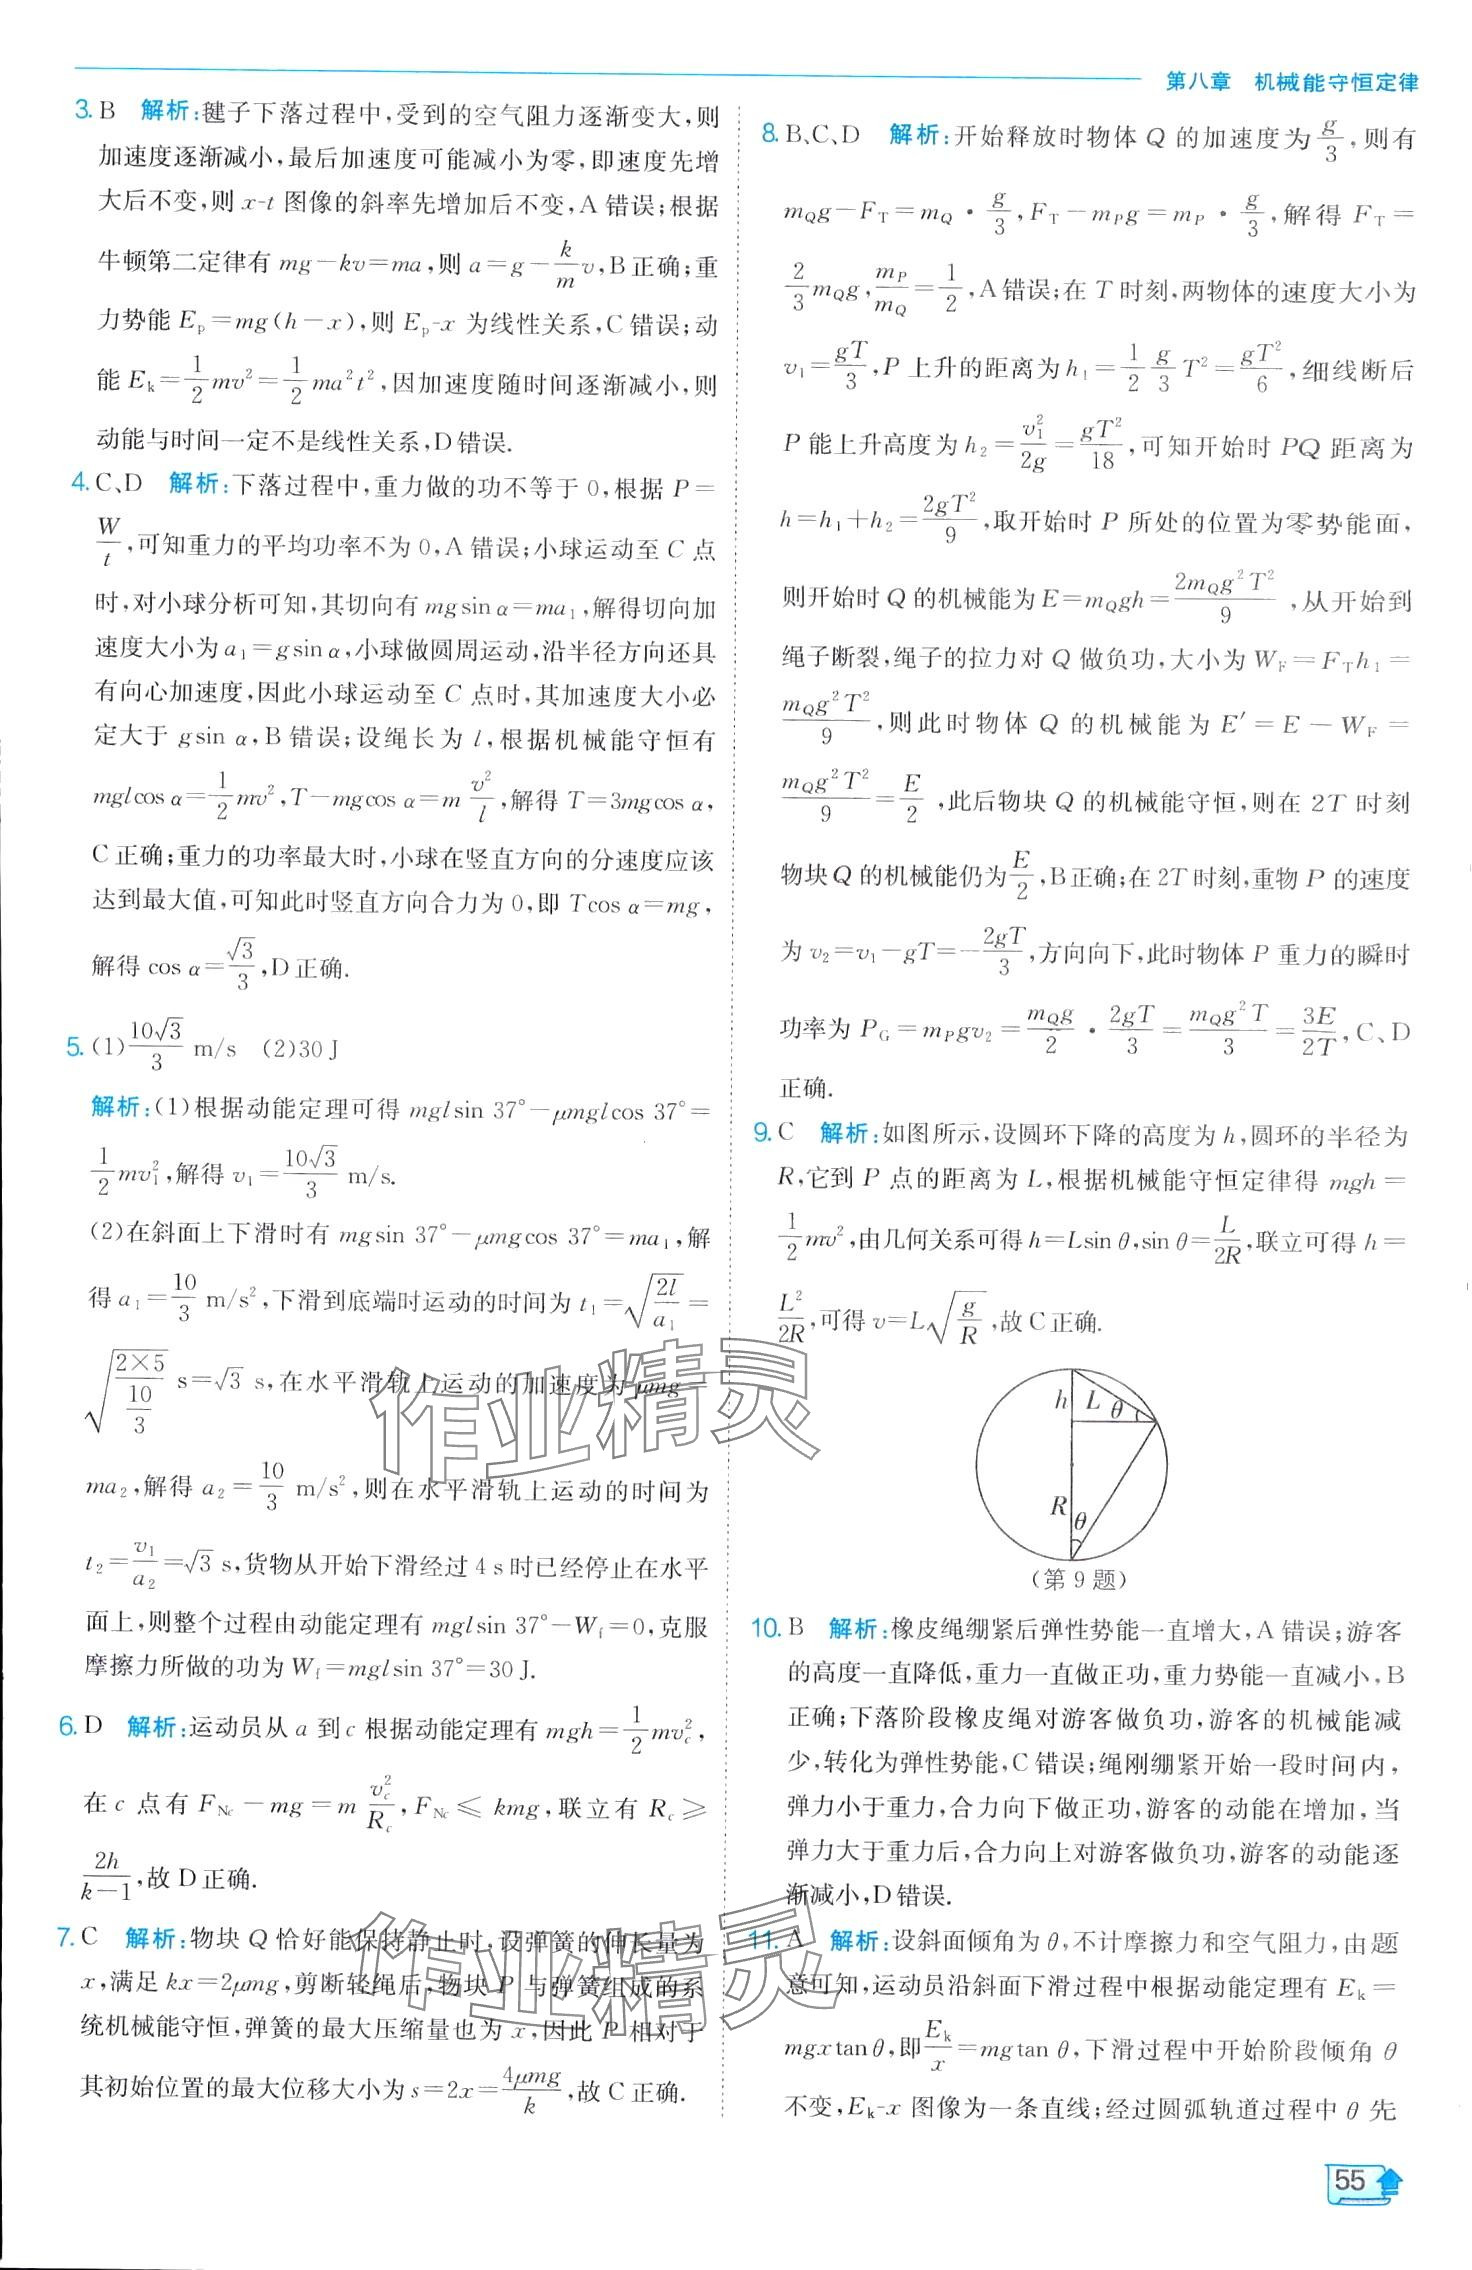 第八章 机械能守恒定律
3. B 解析:毽子下落过程中,受到的空气阻力逐渐变大,则
加速度逐渐减小,最后加速度可能减小为零,即速度先增
大后不变,则 x-t 图像的斜率先增加后不变,A 错误;根据
牛顿第二定律有 mg-kv=ma,则 a=g-\frac{k}{m}v,B正确;重
力势能 E_p=mg(h-x),则 E_p-x 为线性关系,C 错误;动
能 E_k=\frac{1}{2}mv^2=\frac{1}{2}ma^2t^2,因加速度随时间逐渐减小,则
动能与时间一定不是线性关系,D错误.
4. C、D 解析:下落过程中,重力做的功不等于 0,根据 P=
\frac{W}{t},可知重力的平均功率不为 0,A 错误;小球运动至 C 点
时,对小球分析可知,其切向有 mgsin α=ma_1,解得切向加
速度大小为 a_1=gsin α,小球做圆周运动,沿半径方向还具
有向心加速度,因此小球运动至 C 点时,其加速度大小必
定大于 gsin α,B错误;设绳长为 l,根据机械能守恒有
mglcos α=\frac{1}{2}mv^2,T-mgcos α=m\frac{v^2}{l},解得 T=3mgcos α,
C正确;重力的功率最大时,小球在竖直方向的分速度应该
达到最大值,可知此时竖直方向合力为 0,即 Tcos α=mg,
解得 cos α=\frac{\sqrt{3}}{3},D正确.
5. (1)\frac{10\sqrt{3}}{3} m/s (2)30 J
解析:(1)根据动能定理可得 mglsin 37°-μmglcos 37°=
\frac{1}{2}mv_1^2,解得 v_1=\frac{10\sqrt{3}}{3} m/s.
(2)在斜面上下滑时有 mgsin 37°-μmgcos 37°=ma_1,解
得 a_1=\frac{10}{3} m/s^2,下滑到底端时运动的时间为 t_1=\sqrt{\frac{2l}{a_1}}=
\sqrt{\frac{2×5}{\frac{10}{3}}} s=\sqrt{3} s,在水平滑轨上运动的加速度为 μmg=
ma_2,解得 a_2=\frac{10}{3} m/s^2,则在水平滑轨上运动的时间为
t_2=\frac{v_1}{a_2}=\sqrt{3} s,货物从开始下滑经过 4 s时已经停止在水平
面上,则整个过程由动能定理有 mglsin 37°-W_f=0,克服
摩擦力所做的功为 W_f=mglsin 37°=30 J.
6. D 解析:运动员从 a 到c 根据动能定理有 mgh=\frac{1}{2}mv_c^2,
在 c 点有 F_{Nc}-mg=m\frac{v_c^2}{R_c},F_{Nc}≤kmg,联立有 R_c≥
\frac{2h}{k-1},故 D正确.
7. C 解析:物块 Q 恰好能保持静止时,设弹簧的伸长量为
x,满足 kx=2μmg,剪断轻绳后,物块 P 与弹簧组成的系
统机械能守恒,弹簧的最大压缩量也为 x,因此 P 相对于
其初始位置的最大位移大小为 s=2x=\frac{4μmg}{k},故 C正确.
8. B、C、D 解析:开始释放时物体 Q 的加速度为\frac{g}{3},则有
m_Qg-F_T=m_Q·\frac{g}{3},F_T-m_Pg=m_P·\frac{g}{3},解得 F_T=
\frac{2}{3}m_Qg,\frac{m_P}{m_Q}=\frac{1}{2},A错误;在 T时刻,两物体的速度大小为
v_1=\frac{gT}{3},P 上升的距离为h_1=\frac{1}{2}\frac{g}{3}T^2=\frac{gT^2}{6},细线断后
P 能上升高度为 h_2=\frac{v_1^2}{2g}=\frac{gT^2}{18},可知开始时 PQ 距离为
h=h_1+h_2=\frac{2gT^2}{9},取开始时 P 所处的位置为零势能面,
则开始时 Q 的机械能为 E=m_Qgh=\frac{2m_Qg^2T^2}{9},从开始到
绳子断裂,绳子的拉力对 Q 做负功,大小为 W_F=F_Th_1=
\frac{m_Qg^2T^2}{9},则此时物体 Q 的机械能为 E'=E-W_F=
\frac{m_Qg^2T^2}{9}=\frac{E}{2},此后物块 Q 的机械能守恒,则在 2T 时刻
物块Q 的机械能仍为\frac{E}{2},B正确;在 2T时刻,重物 P 的速度
为 v_2=v_1-gT=-\frac{2gT}{3},方向向下,此时物体 P 重力的瞬时
功率为 P_G=m_Pgv_2=\frac{m_Qg}{2}·\frac{2gT}{3}=\frac{m_Qg^2T}{3}=\frac{3E}{2T},C、D
正确.
9. C 解析:如图所示,设圆环下降的高度为 h,圆环的半径为
R,它到 P 点的距离为 L,根据机械能守恒定律得 mgh=
\frac{1}{2}mv^2,由几何关系可得 h=Lsin θ,sin θ=\frac{L}{2R},联立可得 h=
\frac{L^2}{2R},可得 v=L\sqrt{\frac{g}{R}},故C正确.
h L θ
R θ
(第 9 题)
10. B 解析:橡皮绳绷紧后弹性势能一直增大,A 错误;游客
的高度一直降低,重力一直做正功,重力势能一直减小,B
正确;下落阶段橡皮绳对游客做负功,游客的机械能减
少,转化为弹性势能,C 错误;绳刚绷紧开始一段时间内,
弹力小于重力,合力向下做正功,游客的动能在增加,当
弹力大于重力后,合力向上对游客做负功,游客的动能逐
渐减小,D错误.
11. A 解析:设斜面倾角为 θ,不计摩擦力和空气阻力,由题
意可知,运动员沿斜面下滑过程中根据动能定理有 E_k=
mgxtan θ,即\frac{E_k}{x}=mgtan θ,下滑过程中开始阶段倾角 θ
不变,E_k-x 图像为一条直线;经过圆弧轨道过程中 θ 先
55
作业精灵
作业精灵